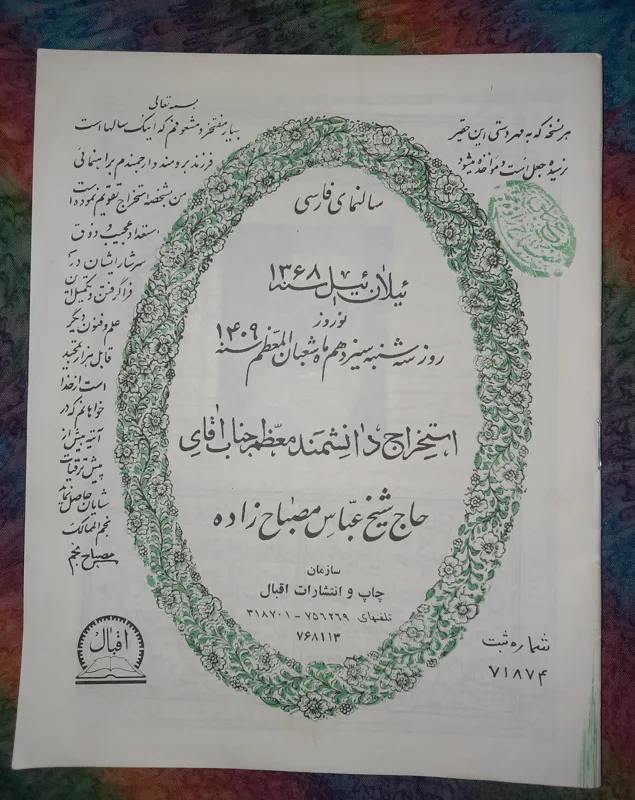 بسمه تعالی
بسیار مفتخر و مشعوفم که اینک سالها است
فرزند برومند و ارجمندم براهنمائی
من بشخصه استخراج تقویم نموده است
استعداد عجیب و ذوق
سرشار ایشان در
فرا گرفتن و تکمیل این
علم و فنون دیگر
قابل هزار تمجید
است از خدا
خواهانم که در
آتیه بیش از
پیش ترقیات
شایان حاصل نماید
نجم الممالک
مصباح منجم
هر نسخه که به مهر دستی این حقیر
نرسیده جعل است و مؤاخذه میشود
سالنمای فارسی
ئیلان ئیل سنه ۱۳۶۸
نوروز
روز سه شنبه سیزدهم ماه شعبان المعظم سنه ۱۴۰۹
استخراج دانشمند معظم جناب آقای
حاج شیخ عباس مصباح زاده
سازمان
چاپ و انتشارات اقبال
تلفنهای ۷۵۶۲۶۹ - ۳۱۸۷۰۱
۷۶۸۱۱۳
اقبال
شماره ثبت
۷۱۸۷۴